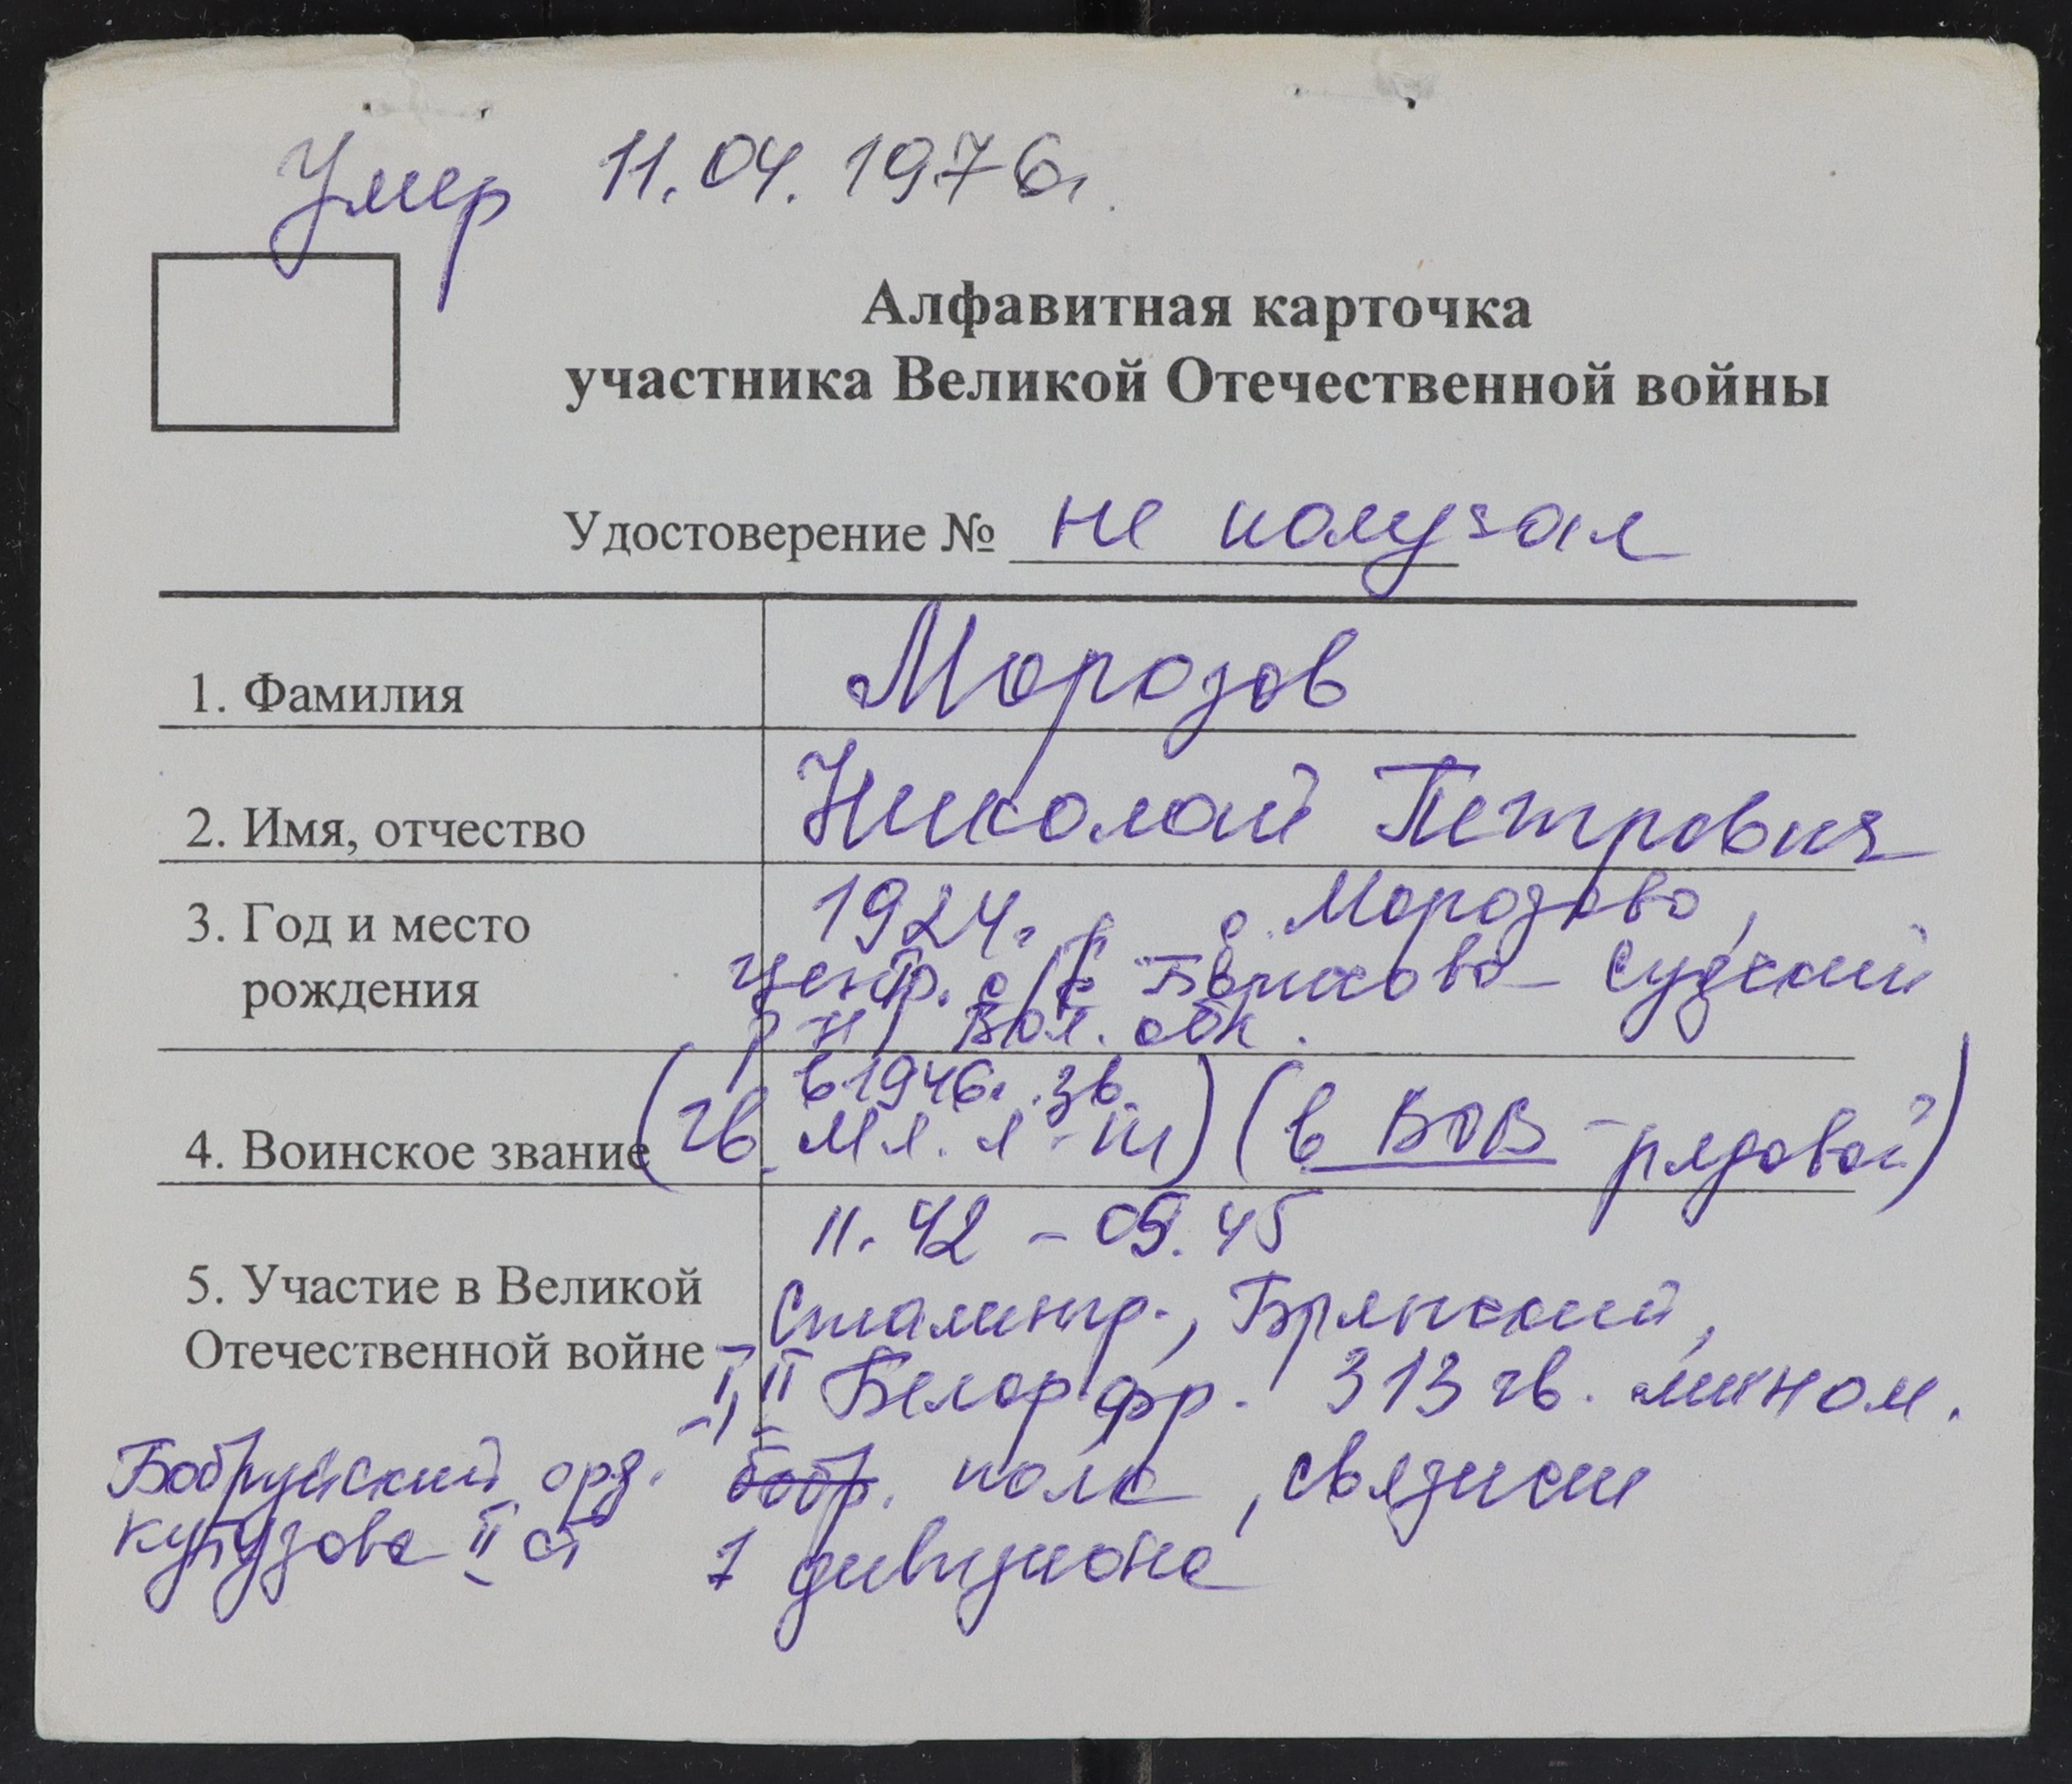 Умер 11.04.1976г.
Алфавитная карточка
участника Великой Отечественной войны
Удостоверение № не получал
1. Фамилия Морозов
2. Имя, отчество Николай Петрович
3. Год и место рождения 1924г. р. с. Морозово,
центр. с/с Борисово-Судский
р-н, Вол. обл.
4. Воинское звание (в 1946г. зв.
гв. мл. л-т) (в ВОВ - рядовой)
5. Участие в Великой Отечественной войне 11.42 – 05.45
Сталингр., Брянский,
I, II Белор фр. 313 гв. мином.
Бобруйский орд. бобр. полк, связист
Кутузова II ст 1 дивизиона